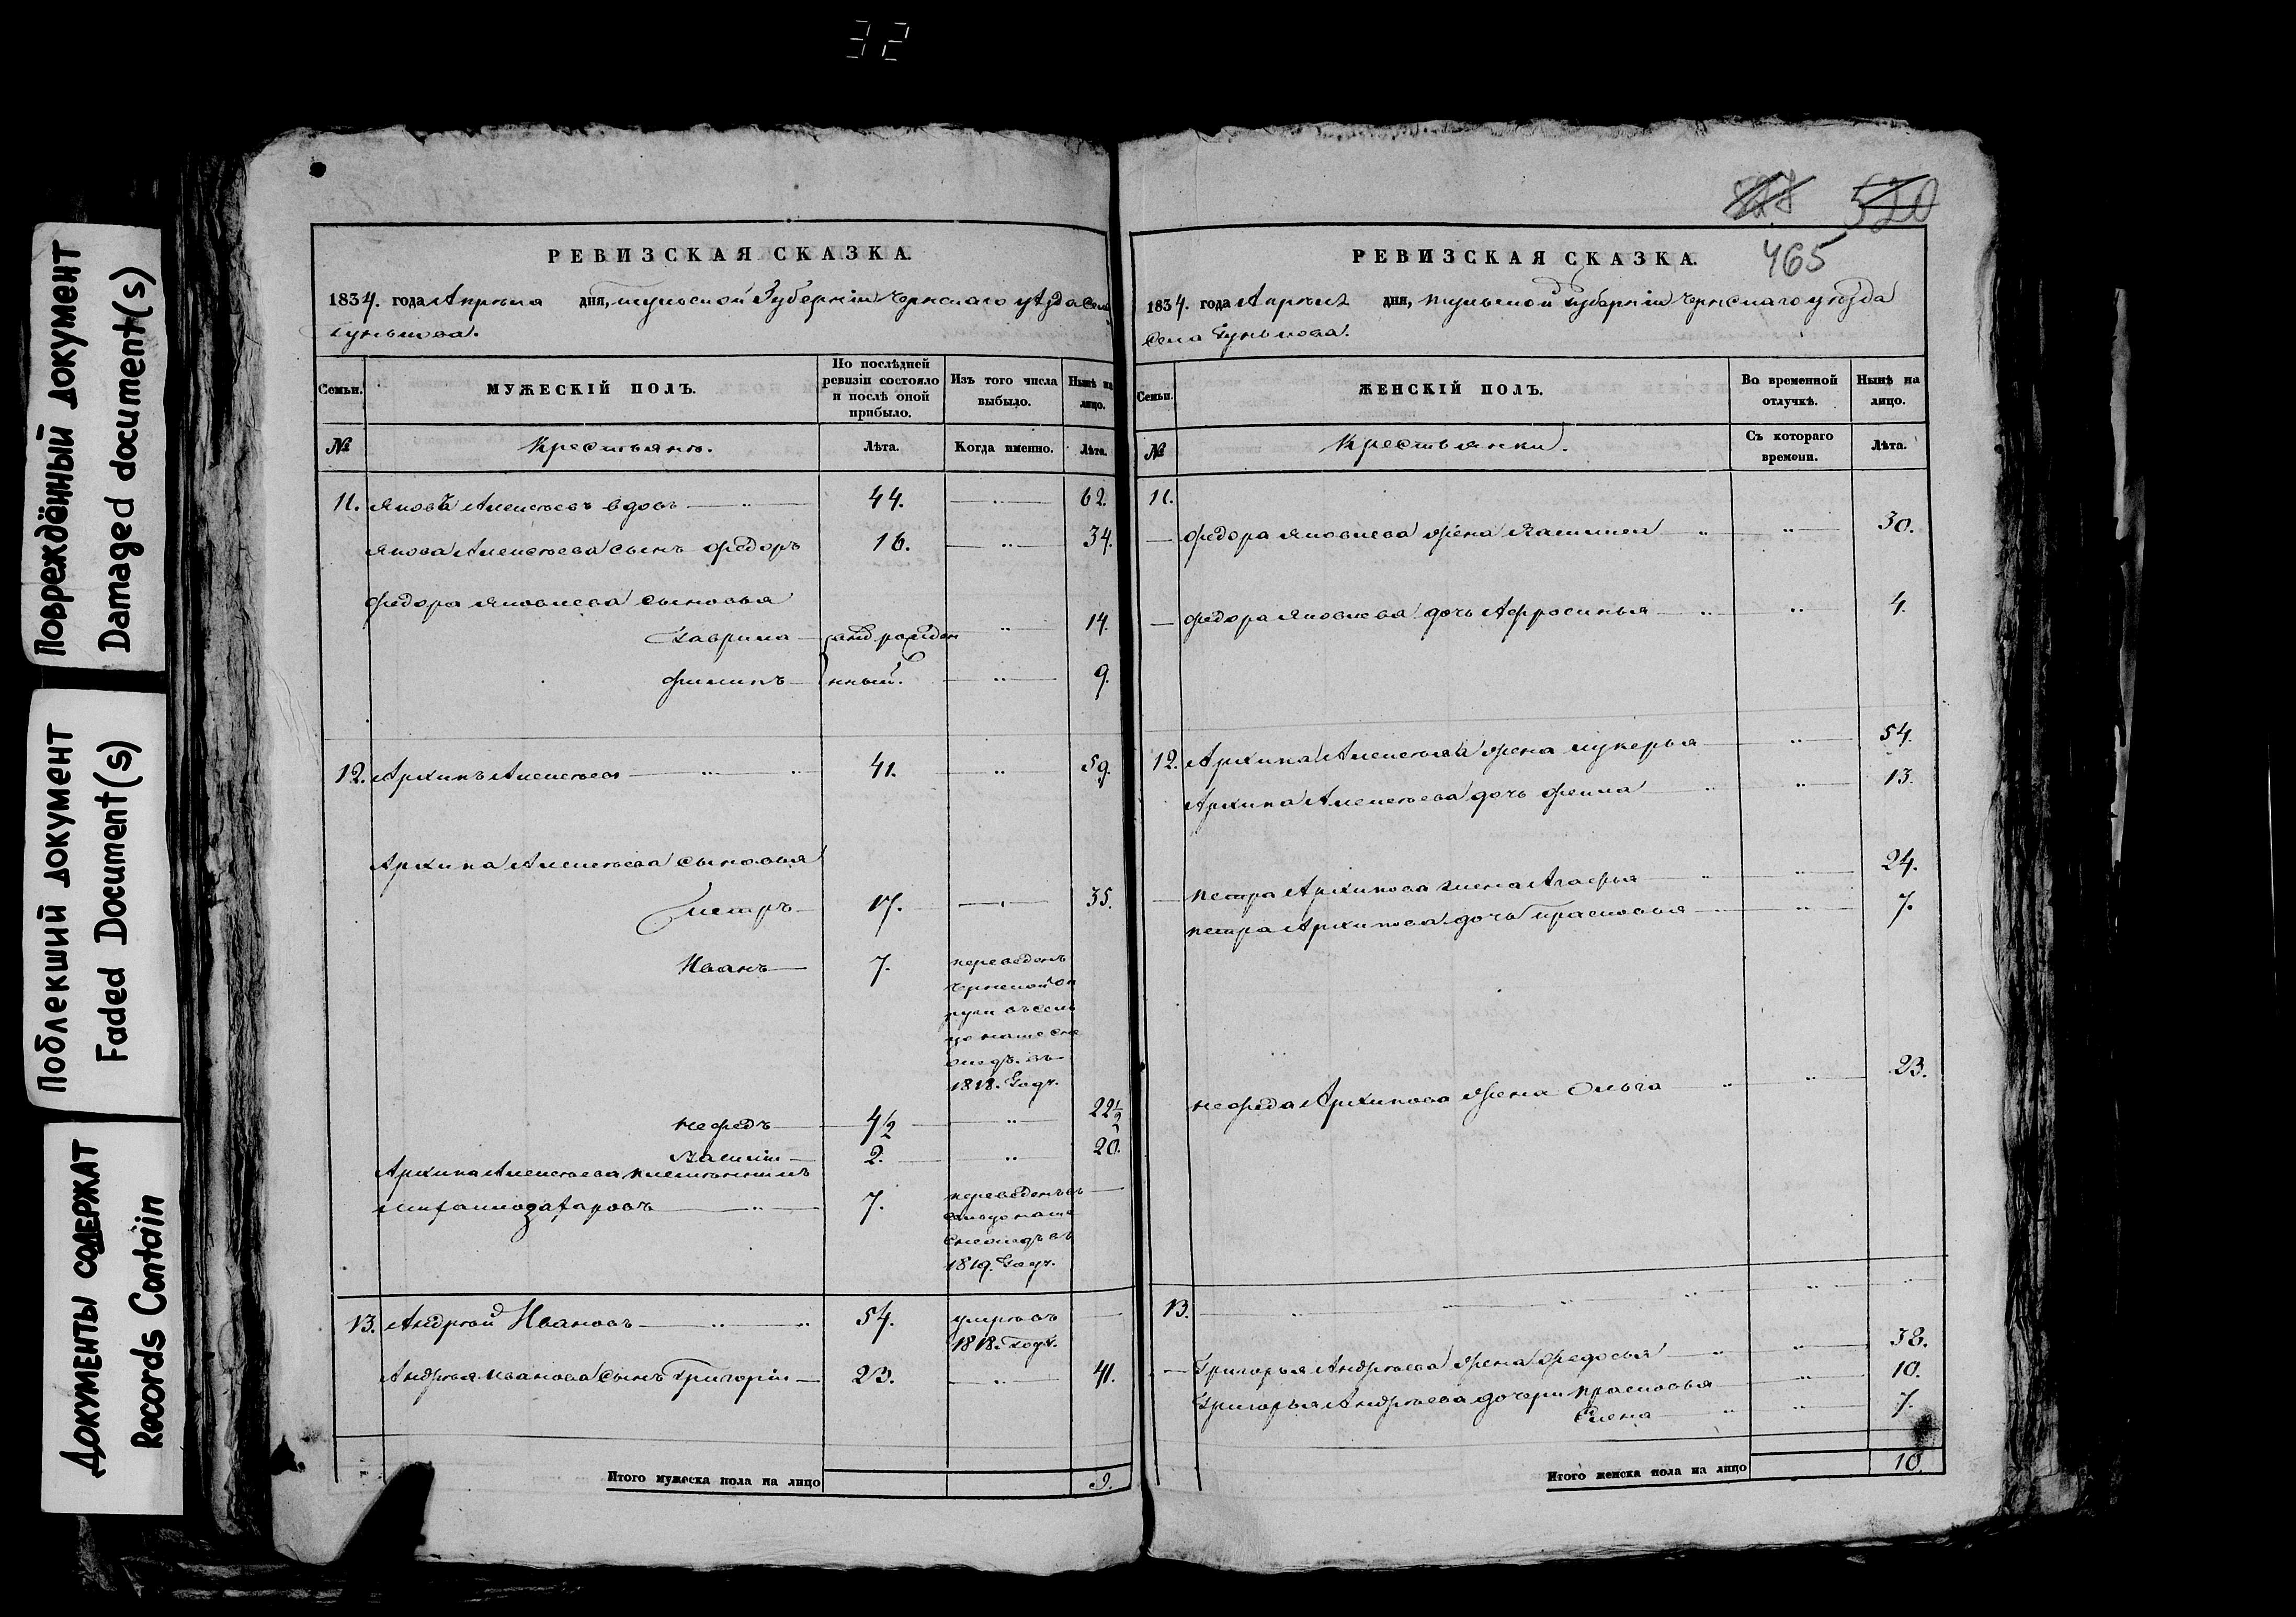 32
Повреждённый документ
Damaged document(s)
Поблекший документ
Faded Document(s)
Документы содержат
Records Contain
РЕВИЗСКАЯ СКАЗКА.
1834. года Апреля дня, тульской Губернiи Чернскаго уѣзда села
Гунькова.
Семьи.
МУЖЕСКIЙ ПОЛЪ.
По послѣдней ревизiи состояло и послѣ оной прибыло.
Изъ того числа выбыло.
Нынѣ на лицо.
№
Крестьянъ.
Лѣта.
Когда именно.
Лѣта.
11. Яковъ Алексѣевъ вдовъ 44. 62.
Якова Алексѣева сынъ Федоръ 16. 34.
Федора Яковлева сыновья
Гаврила 14.
рожден
Филипъ нный. 9.
12. Архипъ Алексѣевъ 41. 59.
Архипа Алексѣева сыновья
Петръ 17. 35.
Иванъ 7. переведенъ
въ
1818. Году.
Нефедъ 4½ 22½
Василiй 2. 20.
Архипа Алексѣева племянникъ
Захаровъ 7. переведенъ въ
сельцо
въ
1819. Году.
13. Андрѣй Ивановъ 54. умре въ
1818. году.
Андрѣя Иванова сынъ Григорiй 23. 41.
Итого мужеска пола на лицо 9.
527 520
465
РЕВИЗСКАЯ СКАЗКА.
1834. года Апреля дня, тульской Губернiи Чернскаго уѣзда
села Гунькова.
Семьи.
ЖЕНСКIЙ ПОЛЪ.
Во временной отлучкѣ.
Нынѣ на лицо.
№
Крестьянки.
Съ котораго времени.
Лѣта.
11.
Федора Яковлева жена 30.
Федора Яковлева дочь Афросинья 4.
12. Архипа Алексѣева жена Лукерья 54.
Архипа Алексѣева дочь Фекла 13.
Петра Архипова жена Агафья 24.
Петра Архипова дочь Прасковья 7.
Нефеда Архипова жена Ольга 23.
13.
Григорья Андрѣева жена Федосья 38.
Григорья Андрѣева дочери Прасковья 10.
Елена 7.
Итого женска пола на лицо 10.